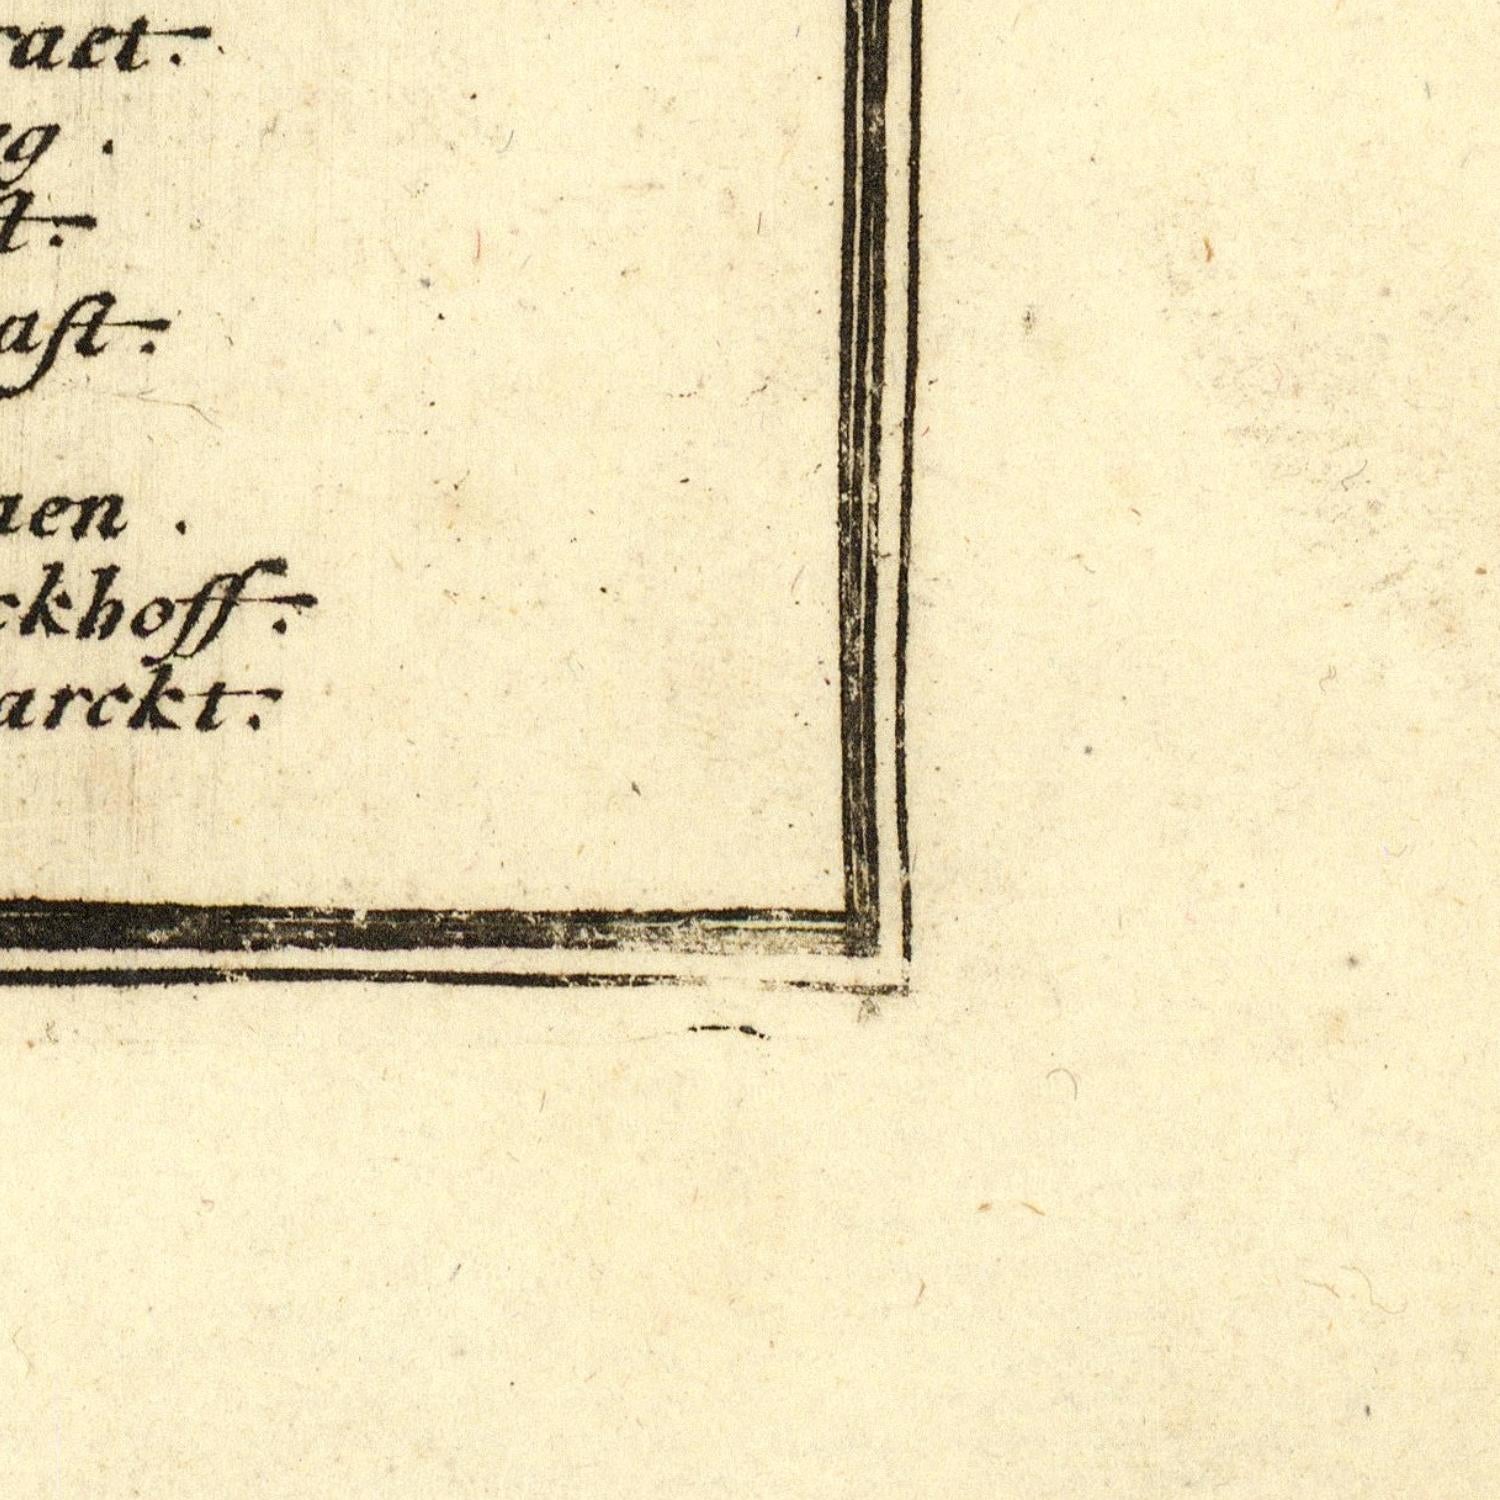 raet.
g .
ſt.
aſt.
aen .
ckhoff.
arckt.